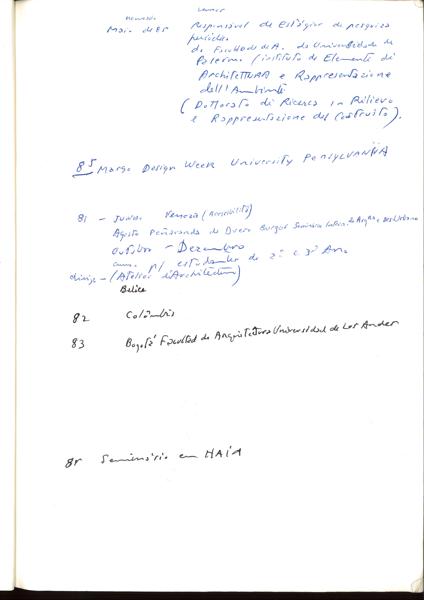 Maio de 85 Responsável de Estágios de pesquisa
da Faculdade de A. da Universidade de
Palermo (instituto de Elementi di
Architettura e Rappresentazione
dell'Ambiente
(Dottorato di Ricerca in Rilievo
e Rappresentazione del Costruito).
85 Março Design Week University PensylvaNNIA
81 - Junho Venezia (Accessibilità)
Agosto Peñaranda de Duero Burgos Seminário
Outubro - Dezembro
curso p/ estudantes de 2º e 3º Ano
dirige - (Atelier d'Architecture)
Belice
82 Colômbia
83 Bogotá Facultad de Arquitectura Universidad de Los Andes
85 Seminário em HAIA